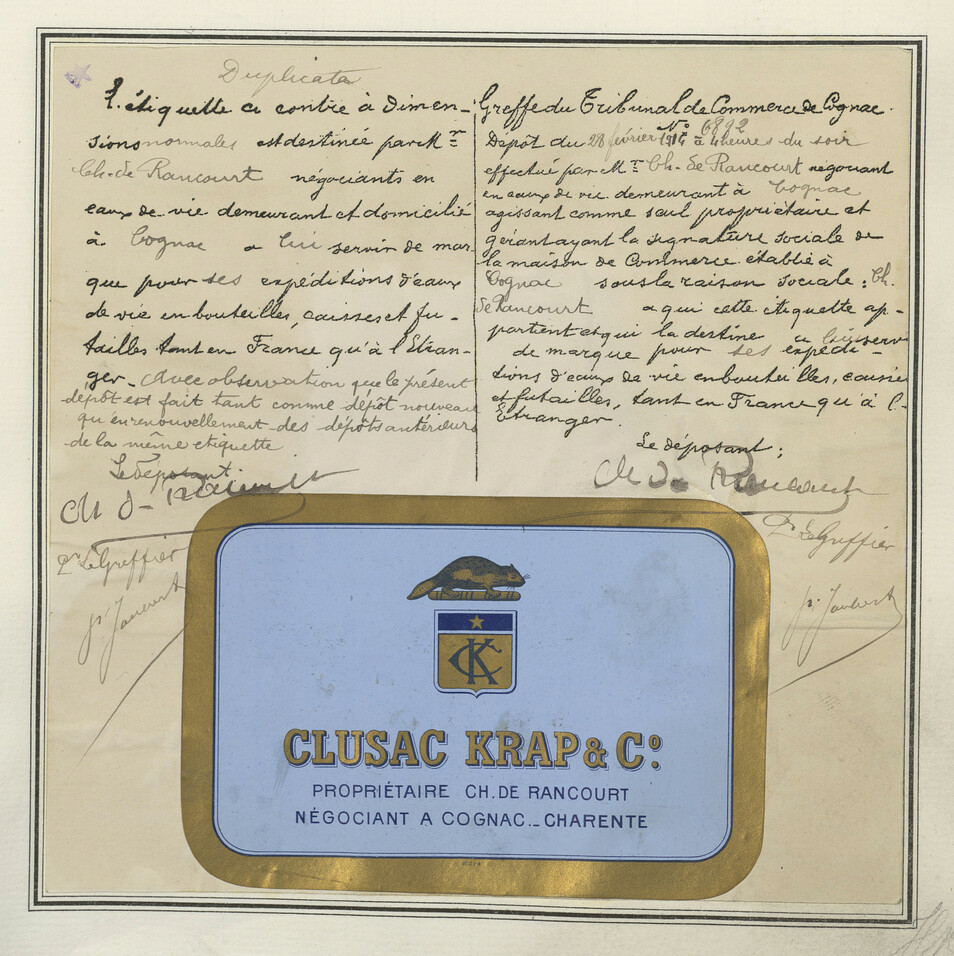 Duplicata
L'étiquette ci contre à Dimen-
sions normales est destinée par Mr
Ch. de Rancourt négociants en
eaux de vie demeurant et domicilié
à Cognac a lui servir de mar
que pour ses expéditions d'eaux
de vie en bouteilles, caisses et fu-
tailles tant en France qu'à l'Etran-
ger. Avec observation que le présent
dépôt est fait tant comme dépôt nouveau
qu'en renouvellement des dépôts antérieurs
de la même etiquette
Le déposant.
Ch de Rancourt
Pr Le Greffier
Greffe du Tribunal de Commerce de Cognac.
No 6892
Dépôt du 28 février 1914 à 4 heures du soir
effectué par Mr Ch. de Rancourt négociant
en eaux de vie demeurant à Cognac
agissant comme seul propriétaire et
gérant ayant la signature sociale de
la maison de Commerce établie à
Cognac sous la raison sociale: Ch.
de Rancourt a qui cette étiquette ap-
partient et qui la destine a lui serv
de marque pour ses expédi-
tions d'eaux de vie en bouteilles, caisse
et futailles, tant en France qu'à l'
Etranger.
Le déposant;
Ch de Rancourt
Pr Le Greffier
CK
CLUSAC KRAP & Co.
PROPRIÉTAIRE CH. DE RANCOURT
NÉGOCIANT A COGNAC._CHARENTE